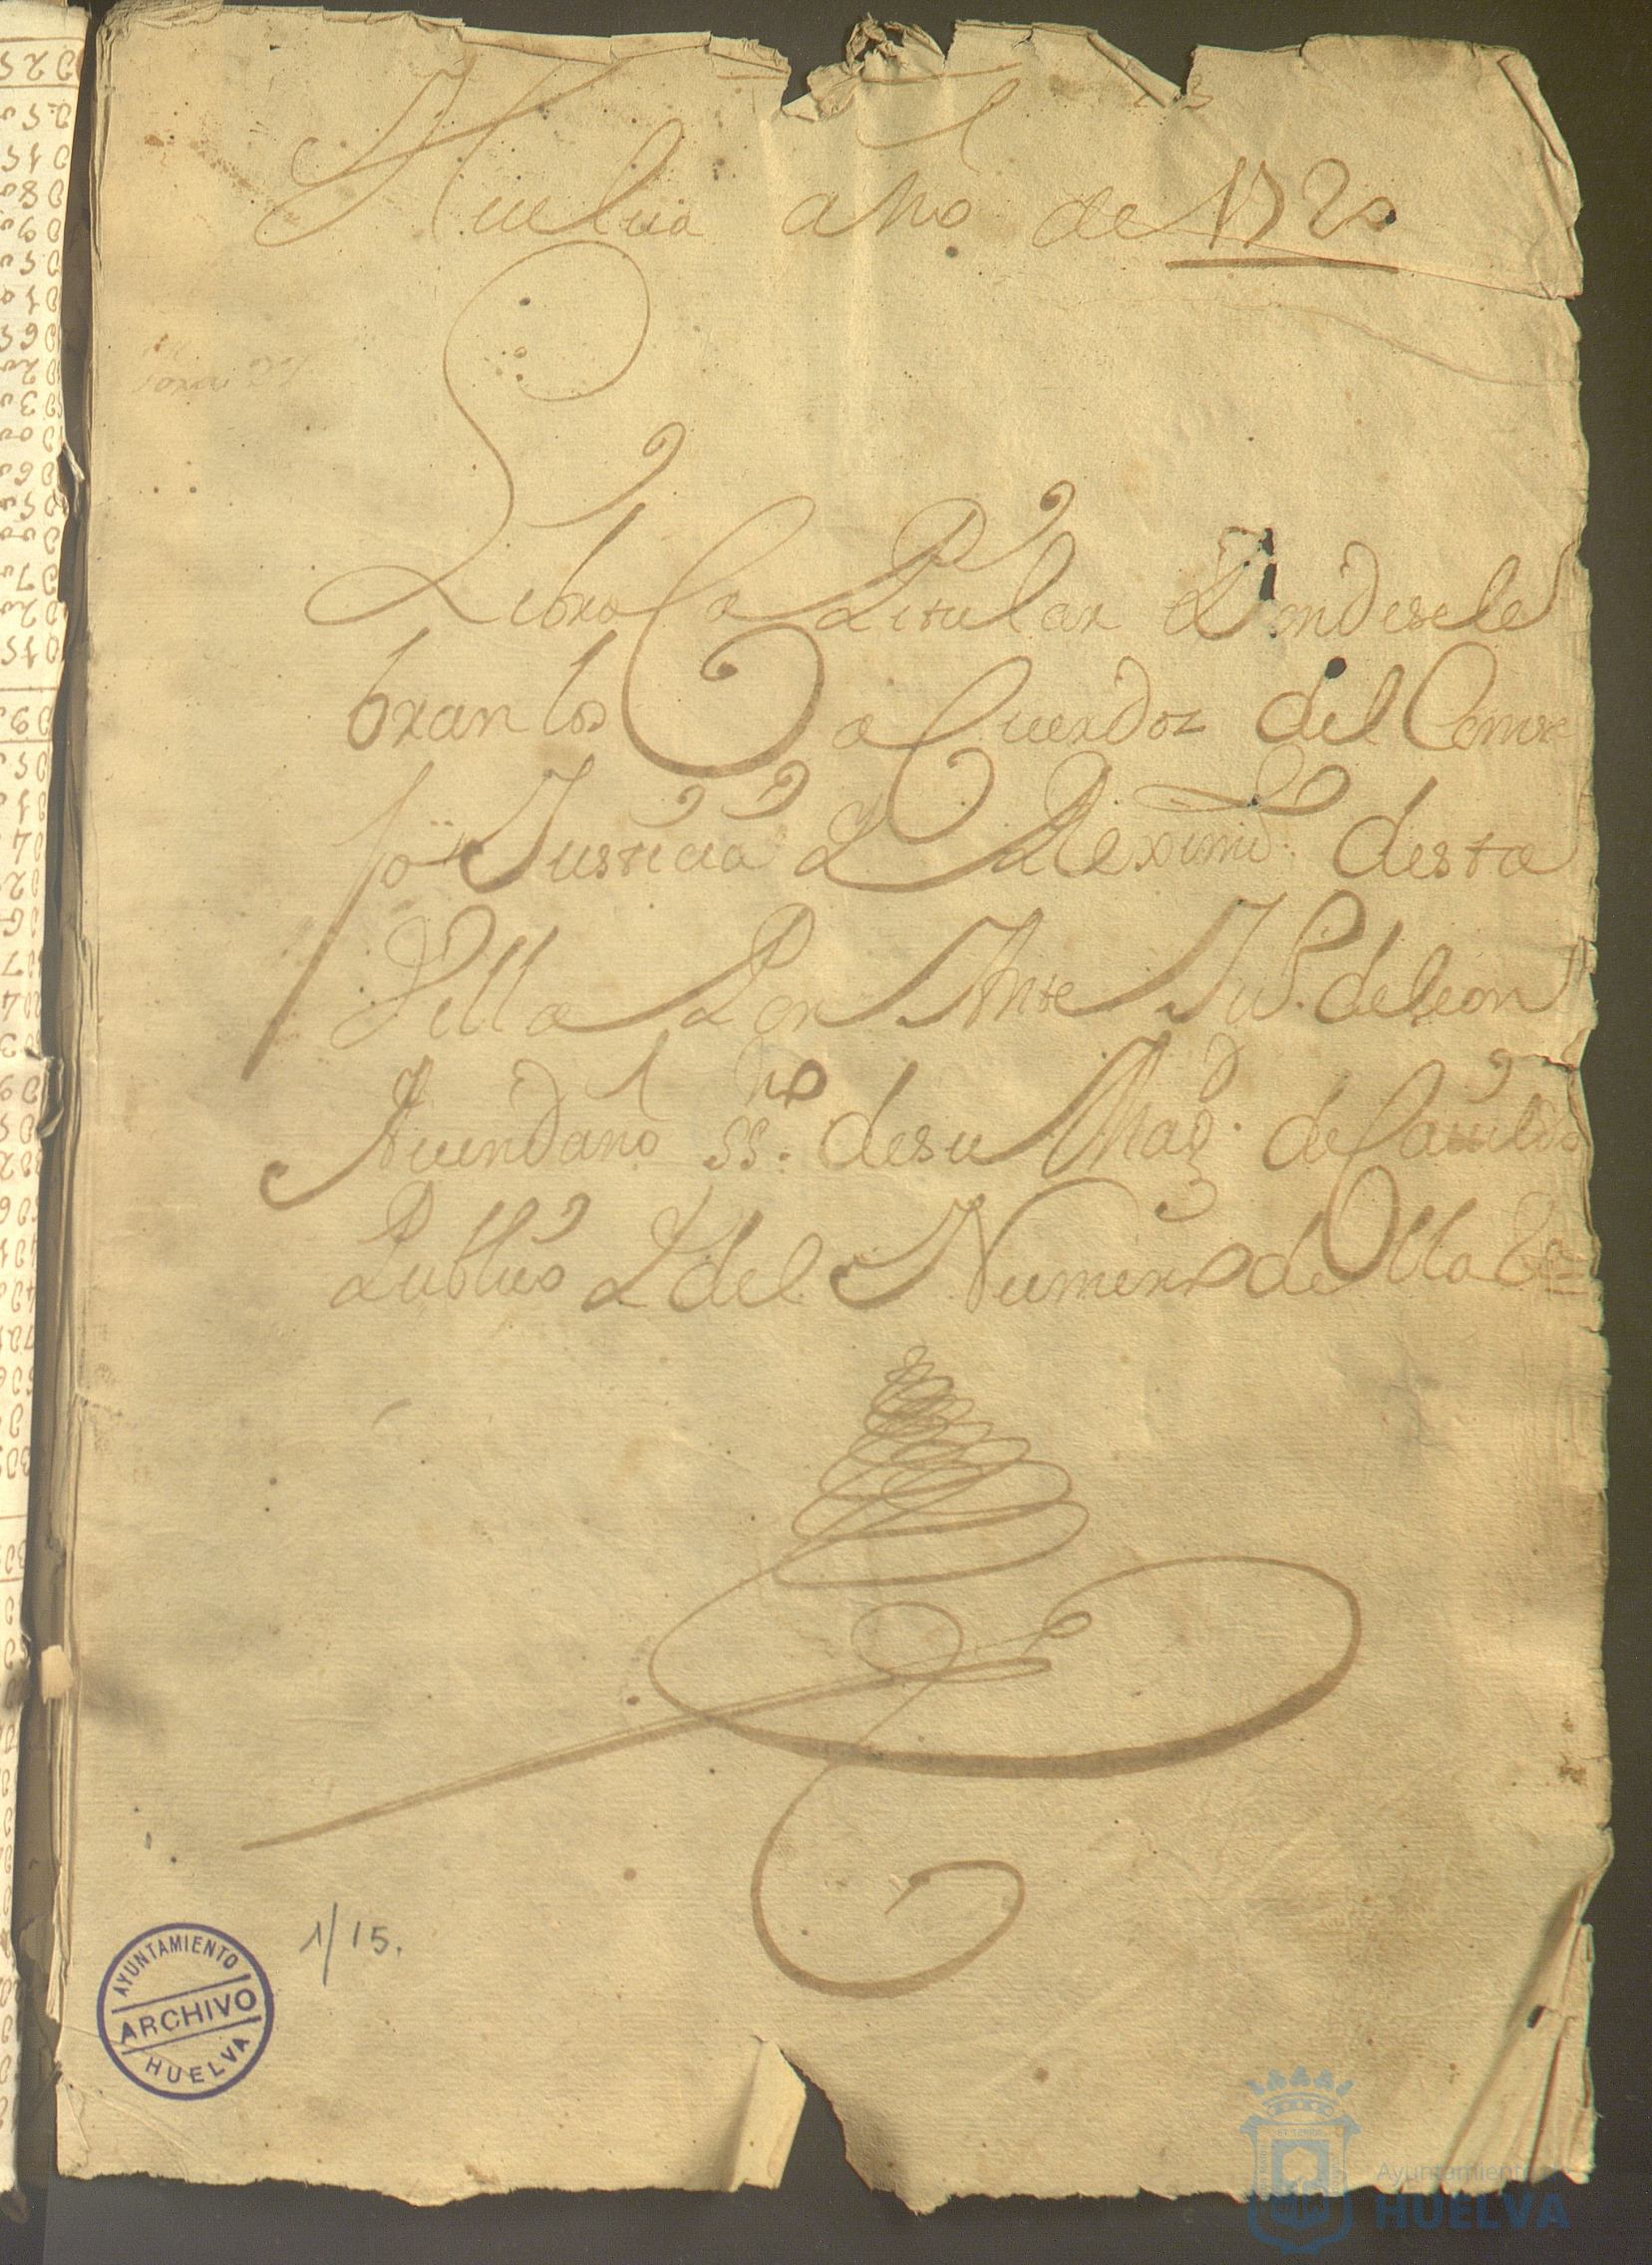 Huelua año de 1720
Libro Capitular Donde sele
bran los acuerdos del Conse
jo Justicia y Reximio desta
Villa Por Ante Jup. de leon
Auendaño ss.no de su Magd. de Cauildo
Publico y del Numero de Ella
1/15.
AYUNTAMIENTO
ARCHIVO
HUELVA
Ayuntamiento
HUELVA